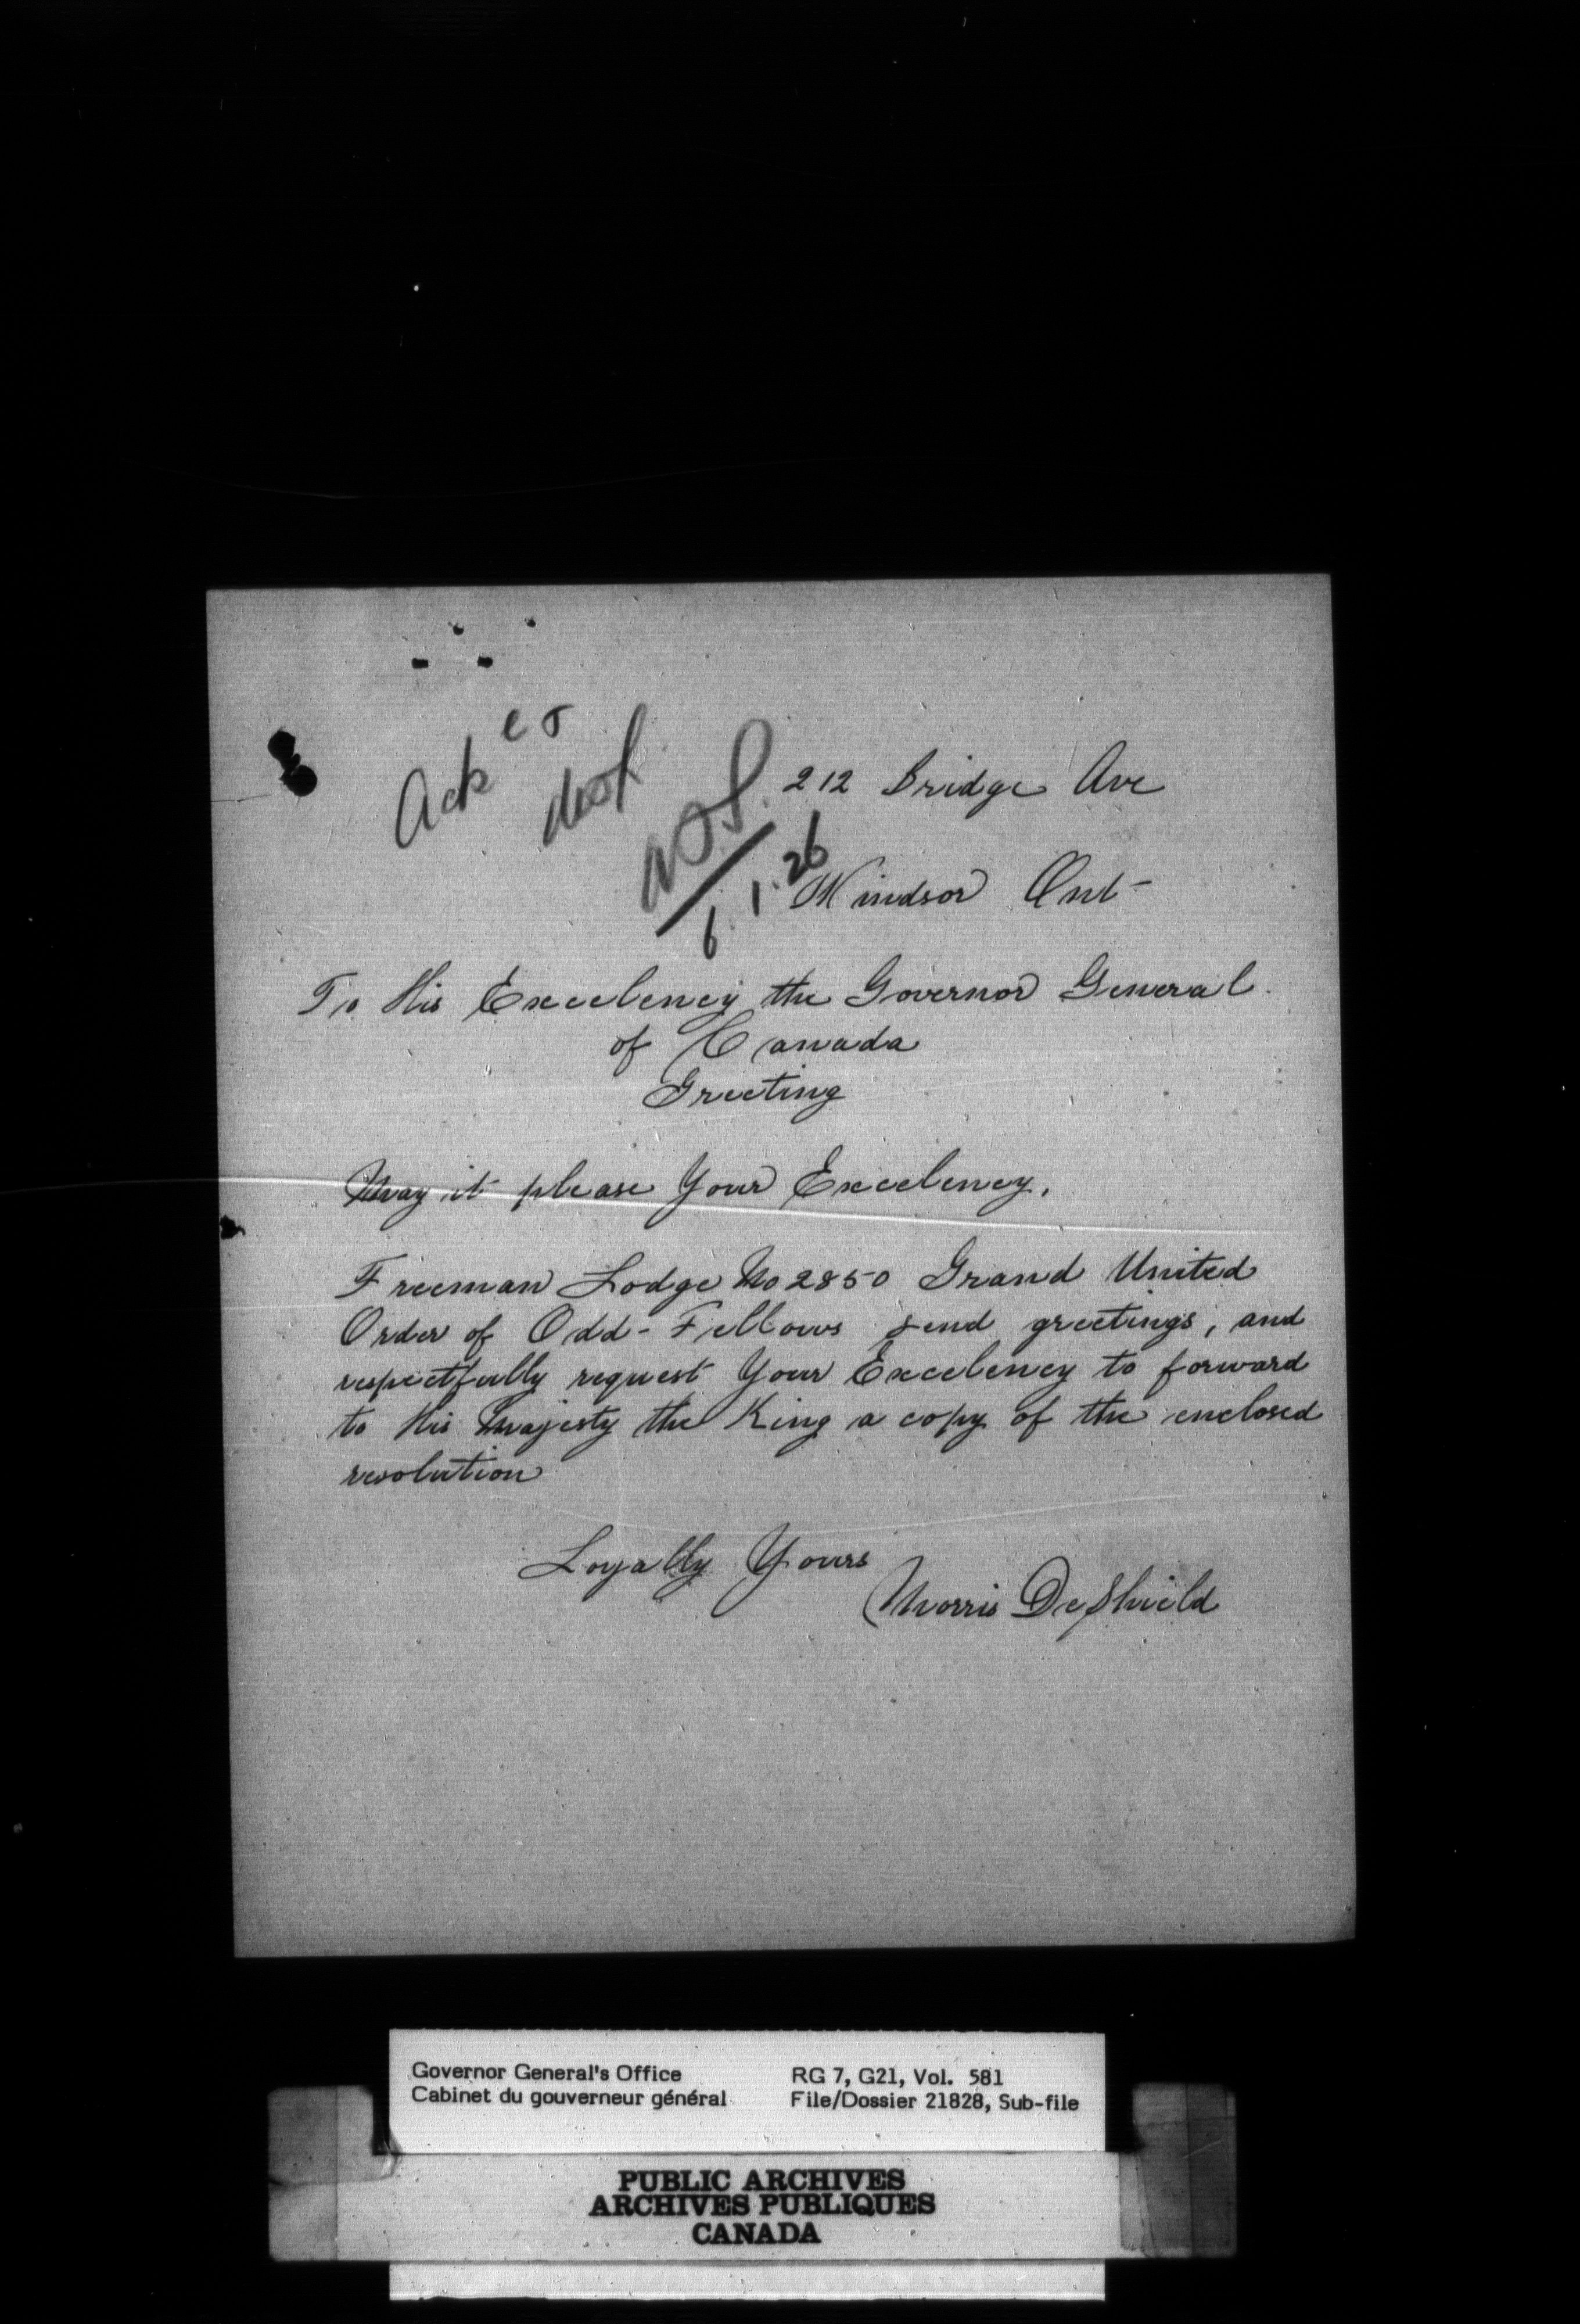 Ack
212 Bridge Ave
6.1.26
Windsor Ont
To His Excelency the Governor General
of Canada
Greeting
May it please Your Excelency,
Freeman Lodge No 2850 Grand United
Order of Odd-Fellows send greetings, and
respectfully request Your Excelency to forward
to His Majesty the King a copy of the enclosed
resolution
Loyally Yours
Morris DeShield
Governor General's Office
Cabinet du gouverneur général
RG 7, G21, Vol. 581
File/Dossier 21828, Sub-file
PUBLIC ARCHIVES
ARCHIVES PUBLIQUES
CANADA